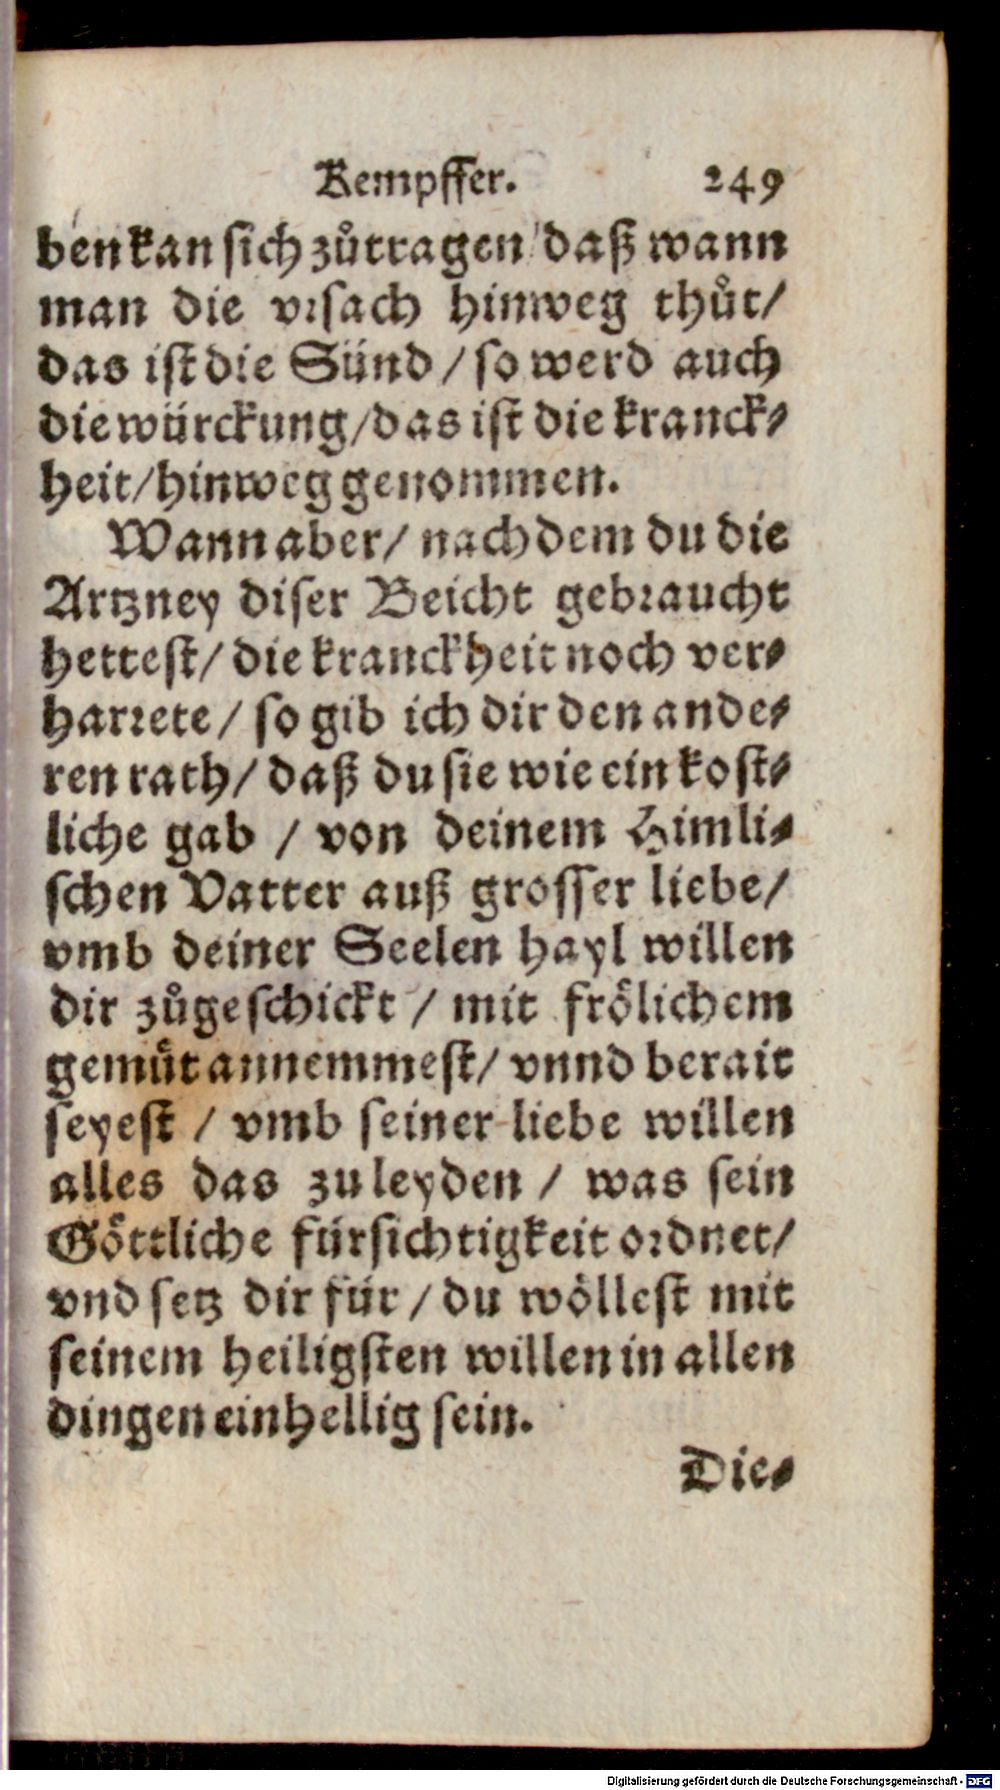 Kempffer. 249
ben kan sich zůtragen / daß wann
man die vrsach hinweg thůt /
das ist die Sünd / so werd auch
die würckung / das ist die kranck-
heit / hinweg genommen.
Wann aber / nach dem du die
Artzney diser Beicht gebraucht
hettest / die kranckheit noch ver-
harrete / so gib ich dir den ande-
ren rath / daß du sie wie ein kost-
liche gab / von deinem Himli-
schen Vatter auß grosser liebe /
vmb deiner Seelen hayl willen
dir zůgeschickt / mit frölichem
gemüt annemmest / vnnd berait
seyest / vmb seiner liebe willen
alles das zu leyden / was sein
Göttliche fürsichtigkeit ordnet /
vnd setz dir für / du wöllest mit
seinem heiligsten willen in allen
dingen einhellig sein.
Die-
Digitalisierung gefördert durch die Deutsche Forschungsgemeinschaft - DFG